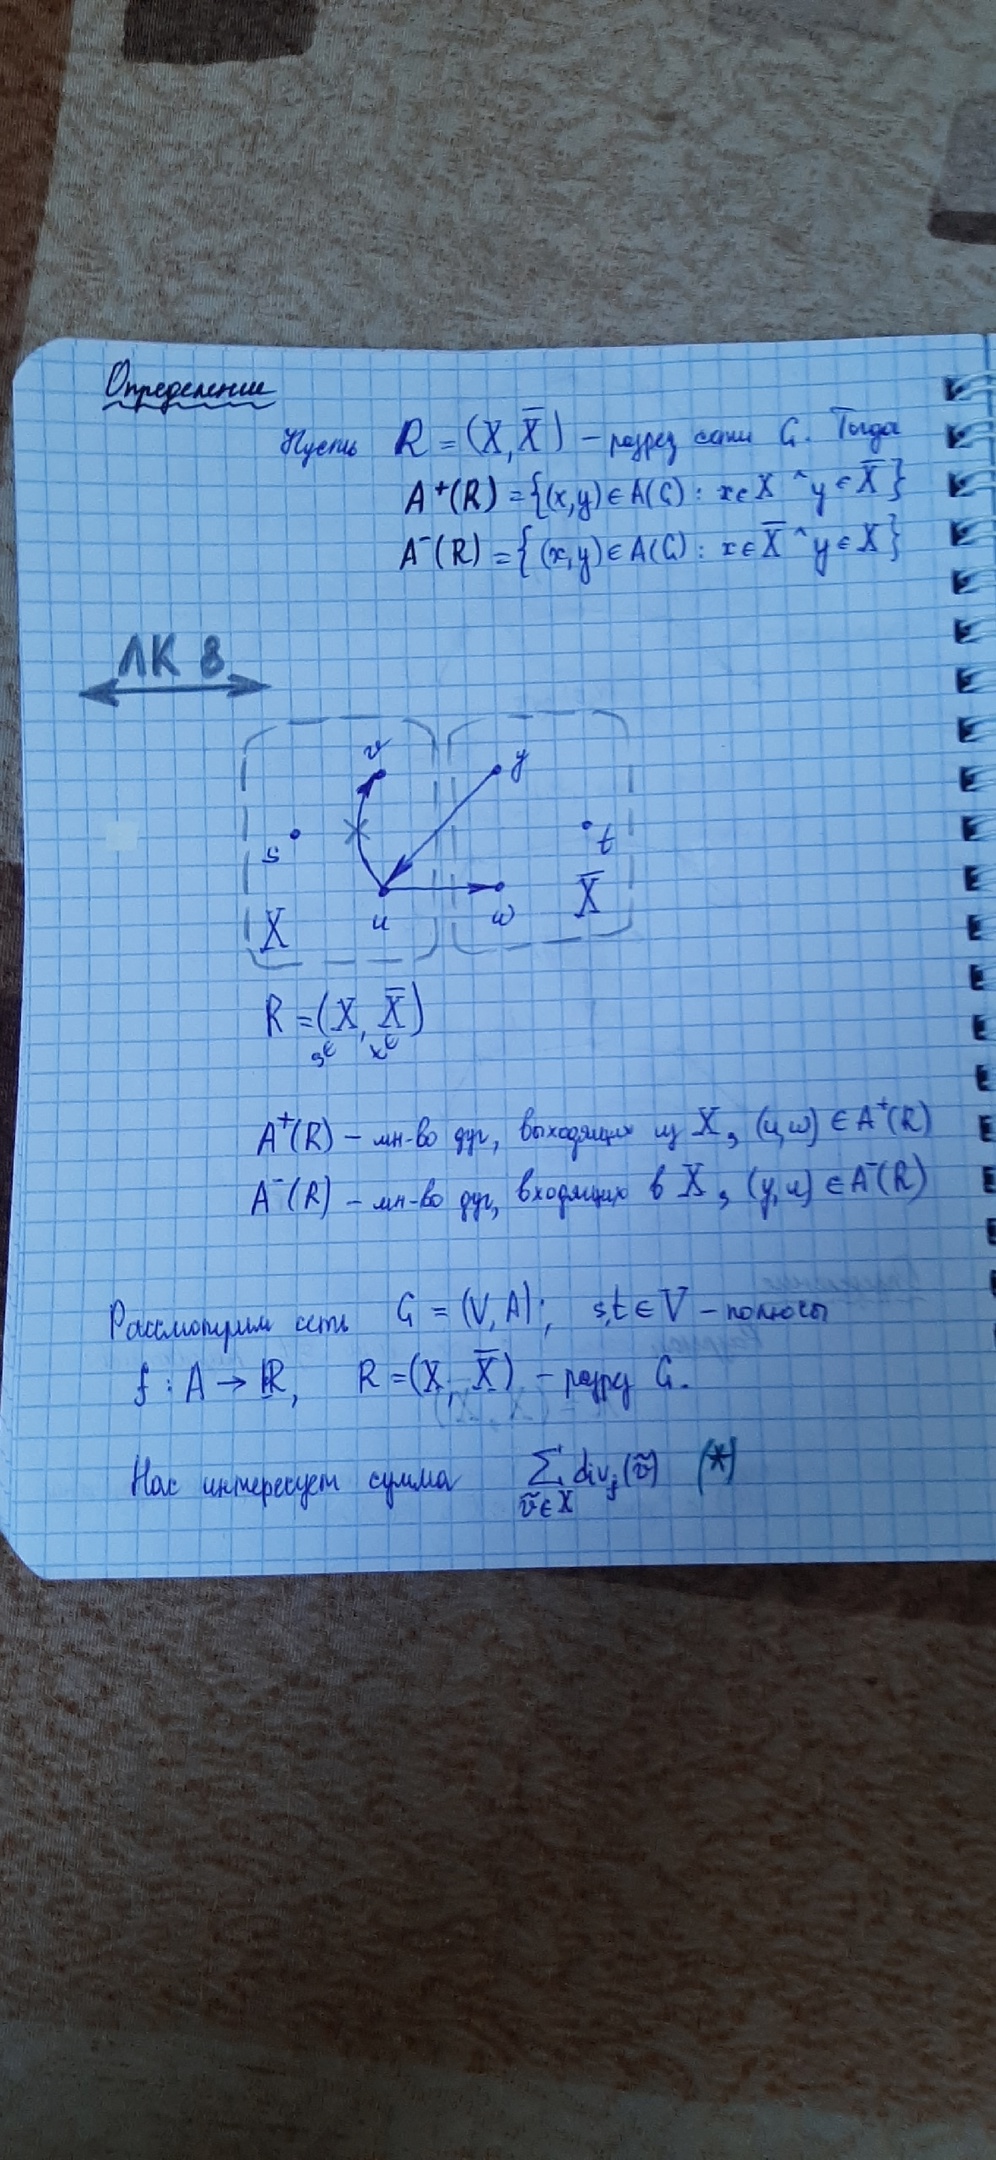 Определение
Пусть R = (X, X̅) – разрез сети G. Тогда
A⁺(R) = {(x,y) ∈ A(G) : x ∈ X ^ y ∈ X̅}
A⁻(R) = {(x,y) ∈ A(G) : x ∈ X̅ ^ y ∈ X}
ЛК 8
v
y
s
t
u
w
X
X̅
R = (X, X̅)
A⁺(R) – мн-во дуг, выходящих из X, (u,w) ∈ A⁺(R)
A⁻(R) – мн-во дуг, входящих в X, (y,u) ∈ A⁻(R)
Рассмотрим сеть G = (V, A); s,t ∈ V – полюсы
f : A → ℝ, R = (X, X̅) – разрез G.
Нас интересует сумма ∑ div_f(ṽ) (*)
ṽ ∈ X